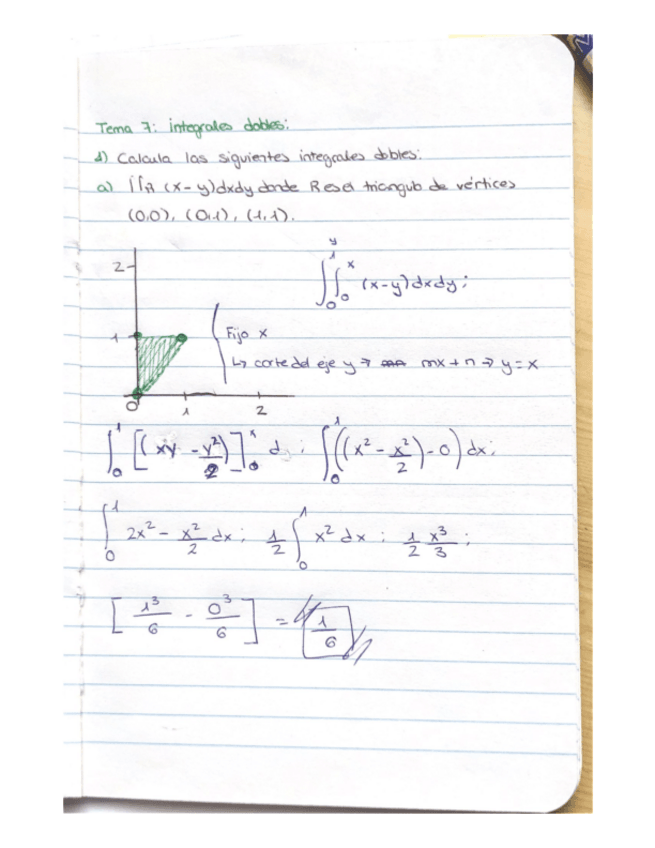 Tema 7: integrales dobles:
1) Calcula las siguientes integrales dobles:
a) ∬R (x-y)dxdy donde R es el triangulo de vértices
(0,0), (0,1), (1,1).
∫₀¹ ∫₀ˣ (x-y)dxdy;
y
2
1
0
1
2
Fijo x
↳ corte del eje y → mx+n → y=x
∫₀¹ [(xy - y²/2)]₀ˣ d ; ∫₀¹ ((x² - x²/2) - 0) dx;
∫₀¹ 2x² - x²/2 dx; 1/2 ∫₀¹ x² dx; 1/2 x³/3;
[1³/6 - 0³/6] = 1/6